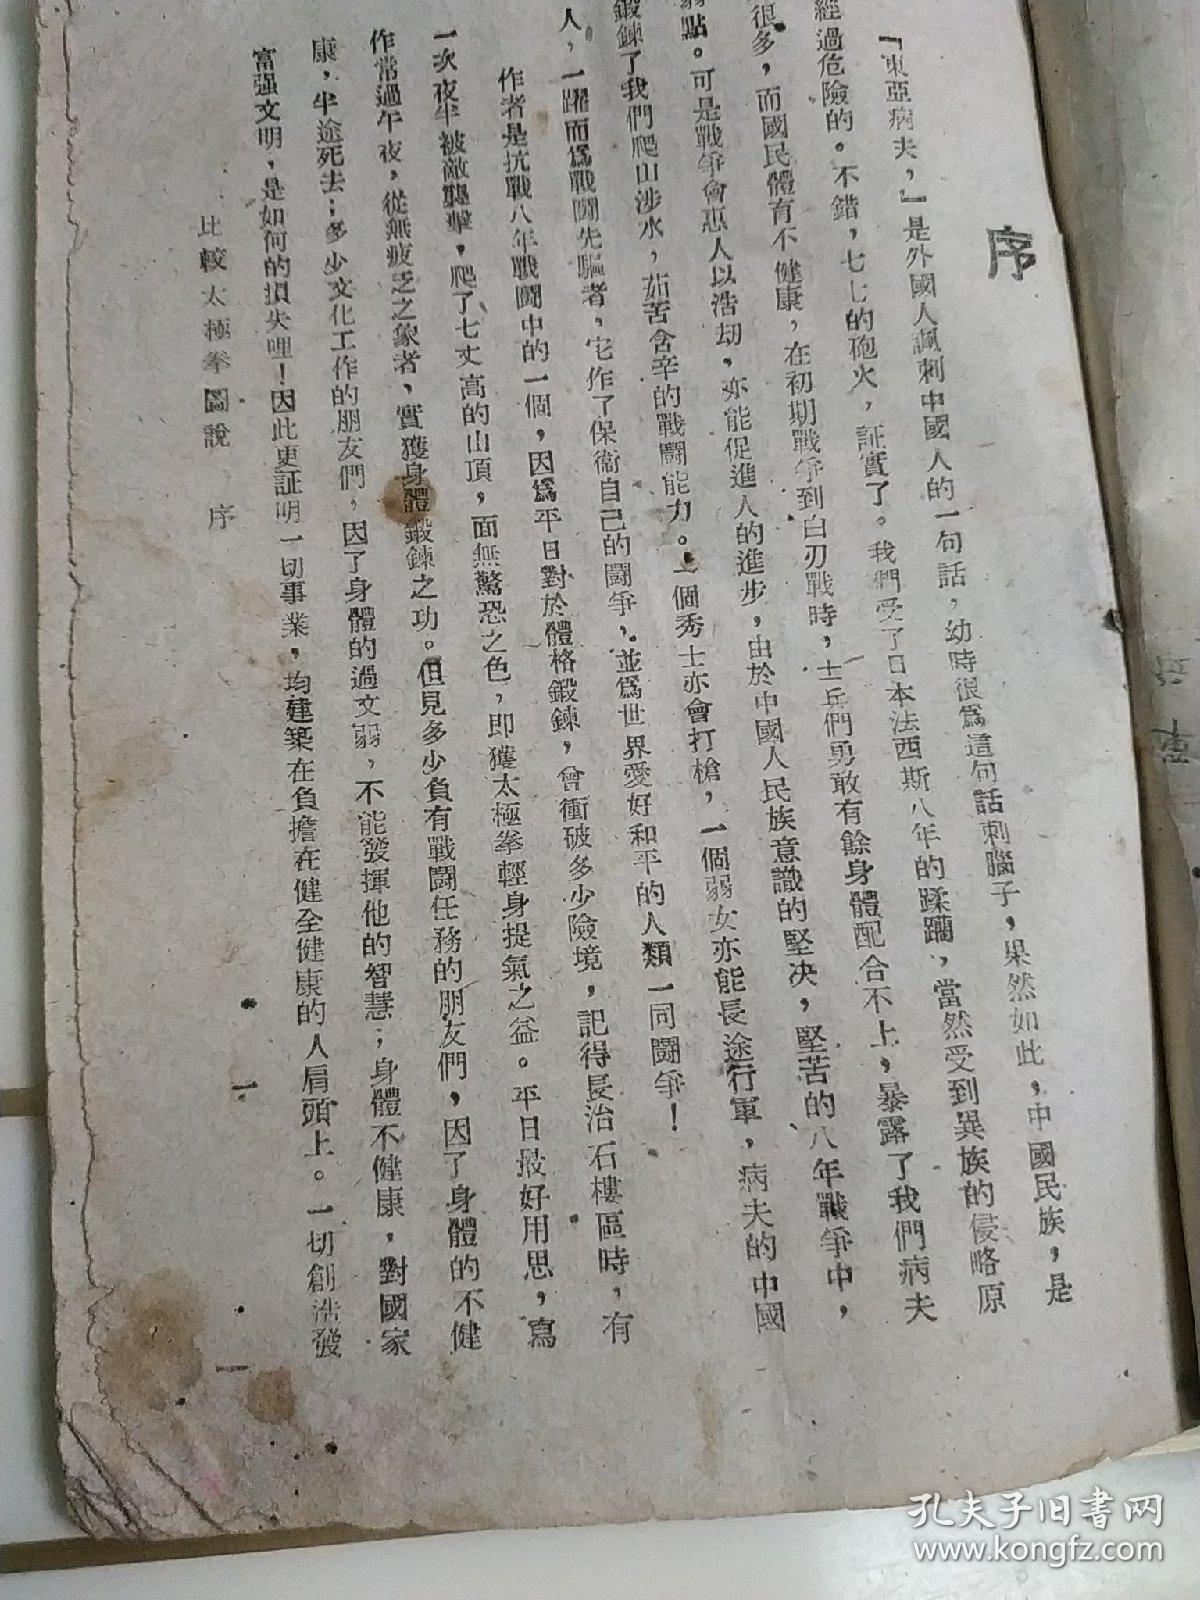 序
「東亞病夫，」是外國人諷刺中國人的一句話，幼時很爲這句話刺腦子，果然如此，中國民族，是
經過危險的。不錯，七七的砲火，証實了。我們受了日本法西斯八年的蹂躪，當然受到異族的侵略原
很多，而國民體有不健康，在初期戰爭到白刃戰時，士兵們勇敢有餘身體配合不上，暴露了我們病夫
弱點。可是戰爭會惠人以浩劫，亦能促進人的進步，由於中國人民族意識的堅决，堅苦的八年戰爭中，
鍛鍊了我們爬山涉水，茹苦含辛的戰鬪能力。一個秀士亦會打槍，一個弱女亦能長途行軍，病夫的中國
人，一躍而爲戰鬪先驅者，它作了保衞自己的鬪爭，並爲世界愛好和平的人類一同鬪爭！
作者是抗戰八年戰鬪中的一個，因爲平日對於體格鍛鍊，曾衝破多少險境，記得長治石樓區時，有
一次夜半被敵襲擊，爬了七丈高的山頂，面無驚恐之色，即獲太極拳輕身提氣之益。平日最好用思，寫
作常過午夜，從無疲乏之象者，實獲身體鍛鍊之功。但見多少負有戰鬪任務的朋友們，因了身體的不健
康，半途死去；多少文化工作的朋友們，因了身體的過文弱，不能發揮他的智慧；身體不健康，對國家
富强文明，是如何的損失哩！因此更証明一切事業，均建築在負擔在健全健康的人肩頭上。一切創造發
比較太極拳圖說 序
一
孔夫子旧书网
www.kongfz.com